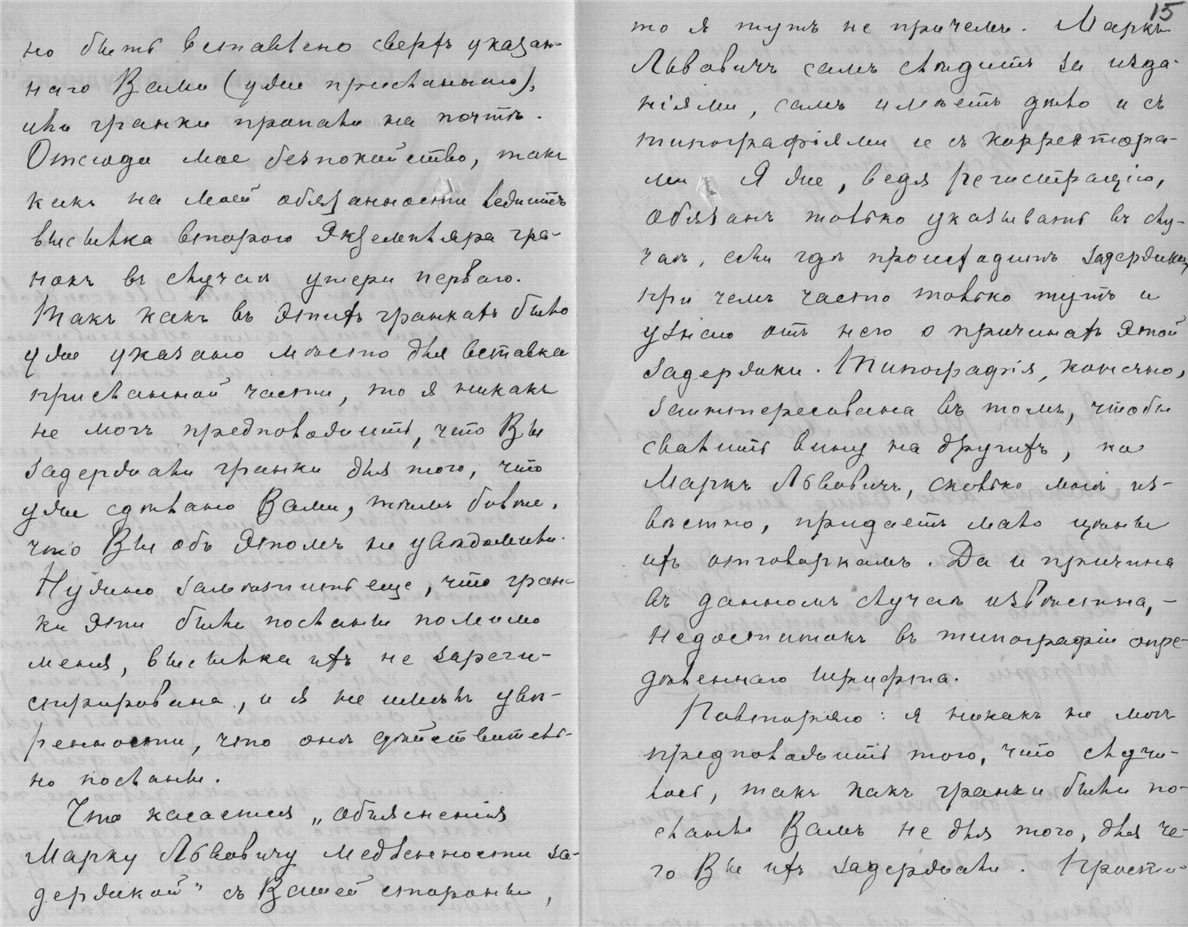 но быть вставлено сверхъ указан-
наго Вами (уже присланнаго),
или гранки пропали на почтѣ.
Отсюда мое безпокойство, такъ
какъ на моей обязанности лежитъ
высылка второго экземпляра гра-
нокъ въ случаѣ утери перваго.
Такъ какъ въ этихъ гранкахъ было
уже указано мѣсто для вставки
присланной части, то я никакъ
не могъ предположить, что Вы
задержали гранки для того, что
уже сдѣлано Вами, тѣмъ болѣе,
что Вы объ этомъ не увѣдомили.
Нужно замѣтить еще, что гран-
ки эти были посланы помимо
меня, высылка ихъ не зареги-
стрирована, и я не имѣлъ увѣ-
ренности, что онѣ дѣйствитель-
но посланы.
Что касается „объясненія
Марку Львовичу медленности за-
держкой" съ Вашей стороны,
15
то я тутъ не причемъ. Маркъ
Львовичъ самъ слѣдитъ за изда-
ніями, самъ имѣетъ дѣло и съ
типографіями и съ корректора-
ми. Я же, ведя регистрацію,
обязанъ только указывать въ слу-
чаѣ, если гдѣ происходитъ задержка,
при чемъ часто только тутъ и
узнаю отъ него о причинахъ этой
задержки. Типографія, конечно,
заинтересована въ томъ, чтобы
свалить вину на другихъ, но
Маркъ Львовичъ, сколько мнѣ из-
вѣстно, придаетъ мало цѣны
ихъ отговоркамъ. Да и причина
въ данномъ случаѣ извѣстна, –
недостатокъ въ типографіи опре-
дѣленнаго шрифта.
Повторяю: я никакъ не могъ
предположить того, что случи-
лось, такъ какъ гранки были по-
сланы Вамъ не для того, для че-
го Вы ихъ задержали. Прости-